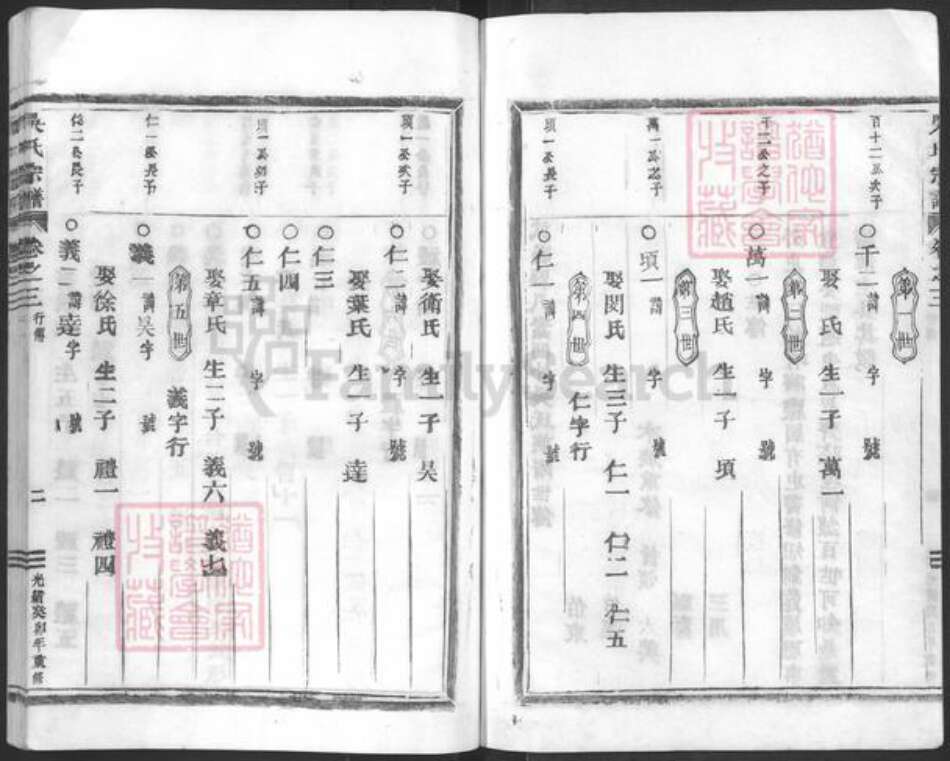 第一世
百十二公次子
千二 諱 字 號
娶 氏 生一子 萬一
第二世
千二公之子
萬一 諱 字 號
娶趙氏 生一子 頊
第三世
萬一公之子
頊一 諱 字 號
娶閔氏 生三子 仁一 仁二 仁五
第四世 仁字行
頊一公長子
仁一 諱 字 號
娶衛氏 生一子 吴
頊一公次子
仁二 諱 字 號
娶葉氏 生一子 達
仁三
仁四
頊一公幼子
仁五 諱 字 號
娶章氏 生二子 義六 義七
第五世 義字行
仁一公長子
義一 諱吴 字 號
娶徐氏 生二子 禮一 禮四
仁二公長子
義二 諱達 字 號
吴氏宗譜 卷之三 行傳 二 光緒癸卯年重修
猶他家譜學會收藏
猶他家譜學會收藏
FamilySearch